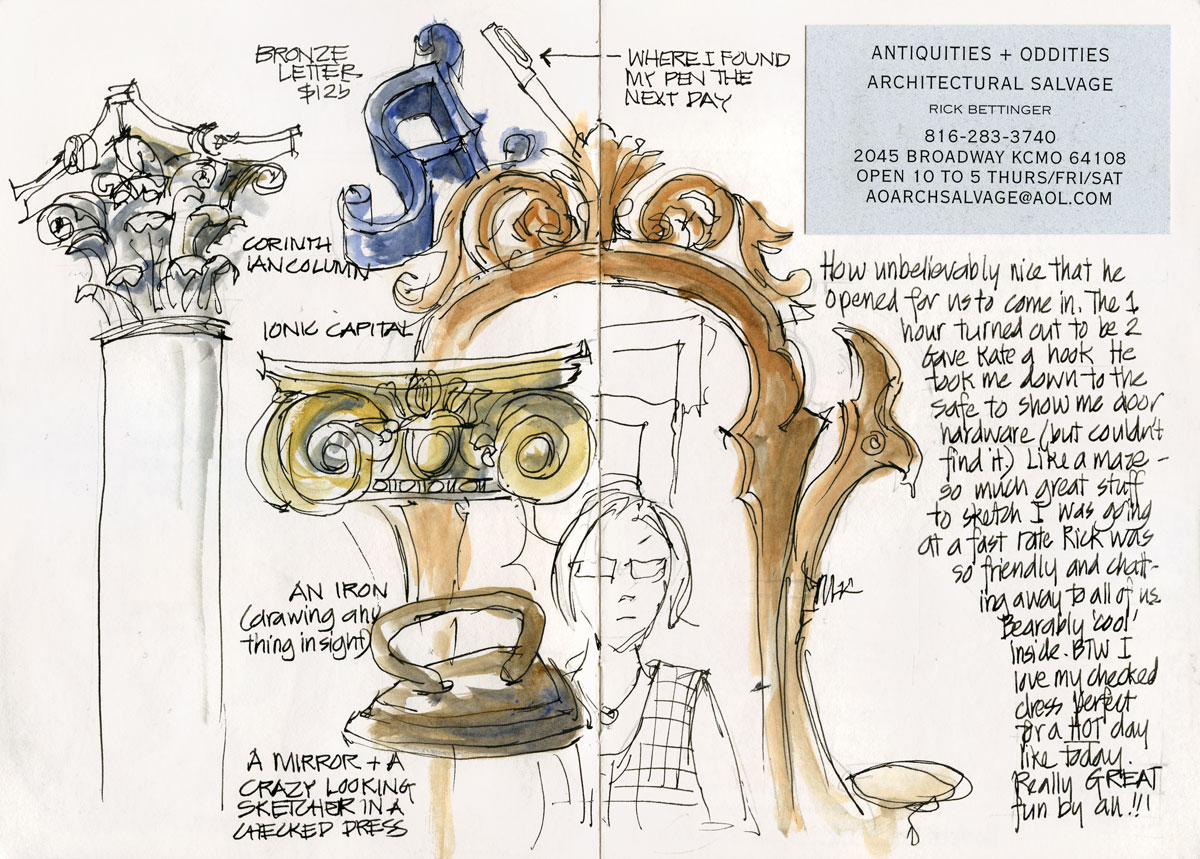 BRONZE
LETTER
$125
WHERE I FOUND
MY PEN THE
NEXT DAY
ANTIQUITIES + ODDITIES
ARCHITECTURAL SALVAGE
RICK BETTINGER
816-283-3740
2045 BROADWAY KCMO 64108
OPEN 10 TO 5 THURS/FRI/SAT
AOARCHSALVAGE@AOL.COM
CORINTH
IAN COLUMN
IONIC CAPITAL
AN IRON
(drawing any
thing in sight)
A MIRROR + A
CRAZY LOOKING
SKETCHER IN A
CHECKED DRESS
How unbelievably nice that he
opened for us to come in. The 1
hour turned out to be 2
Gave Kate a hook He
took me down to the
safe to show me door
hardware (but couldn't
find it.) Like a maze -
so much great stuff
to sketch I was going
at a fast rate Rick was
so friendly and chatt-
ing away to all of us.
Bearably 'cool'
inside. BTW I
love my checked
dress perfect
for a HOT day
like today.
Really GREAT
fun by all!!!